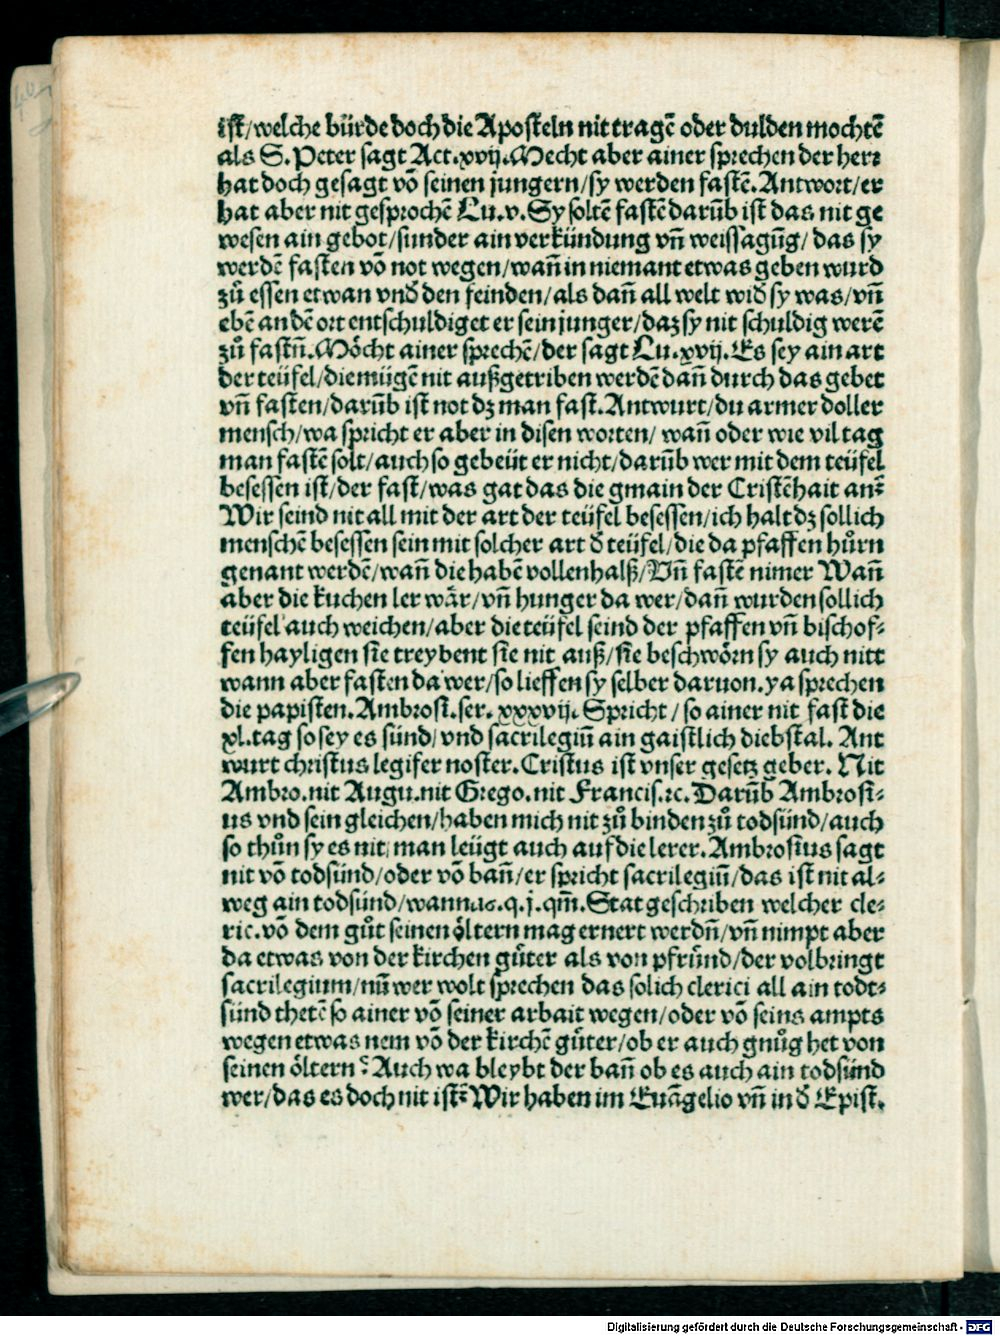 ist/welche bürde doch die Aposteln nit tragē oder dulden mochtē
als S. Peter sagt Act.xvij. Mecht aber ainer sprechen der herꝛ
hat doch gesagt vō seinen jungern/sy werden fastē. Antwort/er
hat aber nit gesprochē Lu.v. Sy soltē fastē darūb ist das nit ge
wesen ain gebot/sunder ain verkündung vñ weissagūg/ das sy
werdē fasten vō not wegen/wañ in niemant etwas geben wurd
zů essen etwan vnď den feinden/als dañ all welt wiď sy was/vñ
ebē an dē ort entschuldiget er sein junger/daz sy nit schuldig werē
zů fastñ. Möcht ainer sprechē/der sagt Lu.xvij. Es sey ain art
der teüfel/die mügē nit außgetriben werdē dañ durch das gebet
vñ fasten/darūb ist not dz man fast. Antwurt/du armer doller
mensch/wa spricht er aber in disen worten/ wañ oder wie vil tag
man fastē solt/auch so gebeüt er nicht/darūb wer mit dem teüfel
besessen ist/der fast/was gat das die gmain der Cristēhait an?
Wir seind nit all mit der art der teüfel besessen/ich halt dz sollich
menschē besessen sein mit solcher art ď teüfel/die da pfaffen hůrn
genant werdē/wañ die habē vollen halß/Vñ fastē nimer Wañ
aber die kuchen ler wär/vñ hunger da wer/dañ wurden sollich
teüfel auch weichen/aber die teüfel seind der pfaffen vñ bischof⸗
fen hayligen sie treybent sie nit auß/sie beschwörn sy auch nitt
wann aber fasten da wer/so lieffen sy selber daruon. ya sprechen
die papisten. Ambrosi. ser. xxxvij. Spricht/so ainer nit fast die
xl.tag so sey es sünd/vnd sacrilegiū ain gaistlich diebstal. Ant
wurt christus legifer noster. Cristus ist vnser gesetz geber. Nit
Ambro.nit Augu.nit Grego.nit Francis.ꝛc. Darūb Ambrosi⸗
us vnd sein gleichen/haben mich nit zů binden zů todsünd/auch
so thůn sy es nit/man leügt auch auf die lerer. Ambrosius sagt
nit vō todsünd/oder vō bañ/er spricht sacrilegiū/das ist nit al⸗
weg ain todsünd/wann .q.j.qm̄. Stat geschriben welcher cle⸗
ric.vō dem gůt seinen öltern mag ernert werdñ/vñ nimpt aber
da etwas von der kirchen güter als von pfründ/der volbringt
sacrilegium/nū wer wolt sprechen das solich clerici all ain todt⸗
sünd thetē so ainer vō seiner arbait wegen/oder vō seins ampts
wegen etwas nem vō der kirchē güter/ob er auch gnůg het von
seinen öltern? Auch wa bleybt der bañ ob es auch ain todsünd
wer/das es doch nit ist? Wir haben im Euāgelio vñ in ď Epist.
Digitalisierung gefördert durch die Deutsche Forschungsgemeinschaft - DFG